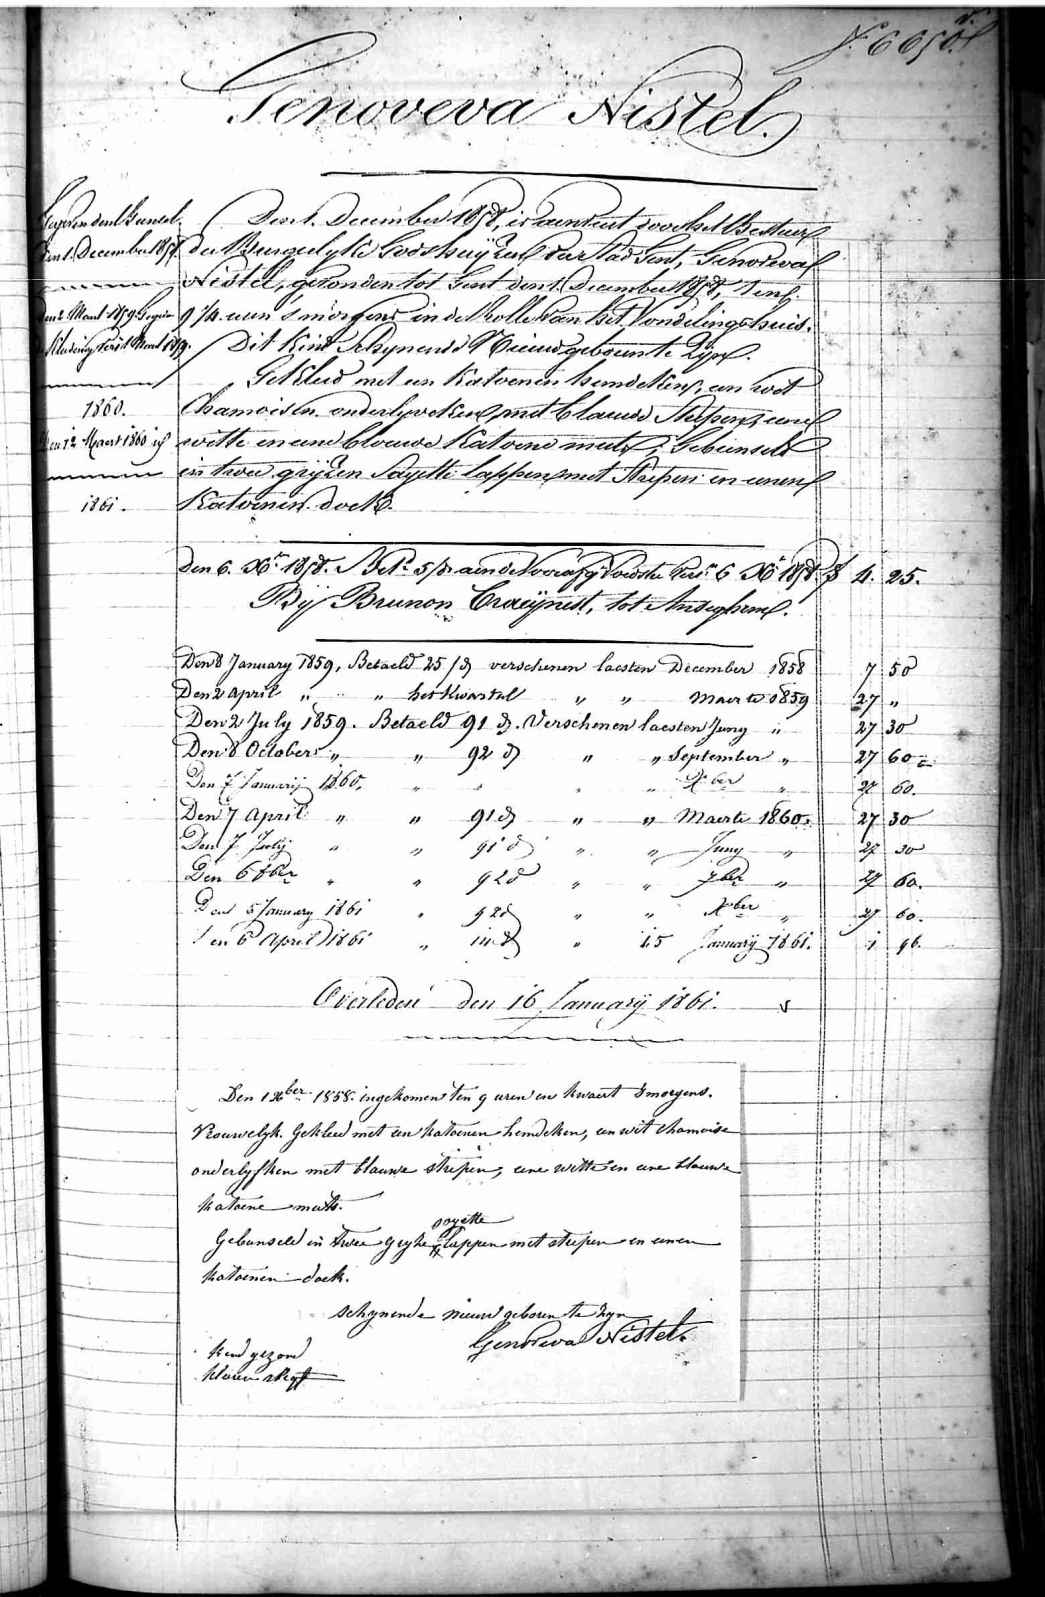 N.° 6650. v.
Genoveva Nistel.
Gegeven den Bunsel.
den 1. December 1858.
den 2 Maert 1859 Gegeven
Kleeding verst Maert 1859.
1860.
Den 12 Maert 1860 id
1861.
Den 1. December 1858, is aenveert door het Bestuer
der Burgelyke Godshuyzen der Stad Gent, Genoveva
Nistel, gezonden tot Gent den 1. December 1858, ten
9 1/4 uren 's morgens in de Rolle van het Vondelingshuis.
Dit Kind schynende Nieuwgeboren te Zyn.
Gekleed met een Katoenen hemdeken, een wit
Chamoisen onderlyveken met blauwe Strepen, eene
witte en eene blouwe Katoene muts; Gebunseld
in twee gryzen Sayette lappen met Strepen en eenen
Katoenen doek.
Den 6. Xr 1858. Bet. 5/d. aen de Voorzyde Vers. 6 Xr 1858. f 4. 25.
By Brunon Craeynest, tot Anseghem.
Den 8 January 1859, Betaeld 25/d verschenen laesten December 1858 7 50
Den 2 April " " het Kwartal " " Maerte 1859 27 "
Den 2 July 1859. Betaeld 91 d. Verschenen laesten Juny " 27 30
Den 8 October " " 92 d " " September " 27 60
Den 7 January 1860. " " " " Xber " 27 60.
Den 7 April " " 91 d " " Maerte 1860. 27 30
Den 7 July " " 91 d " " Juny " 27 30
Den 6 8ber " " 92 d " " 7ber " 27 60.
Den 5 January 1861 " 92 d " " Xber " 27 60.
Den 6 April 1861 " " 15 January 1861. 1 96.
Overleden den 16 January 1861.
Den 1 Xber 1858. ingekomen ten 9 uren en kwaert smorgens.
Vrouwelyk. Gekleed met een katoenen hemdeken, een wit chamoise
onderlyfken met blauwe strepen, eene witte en eene blauwe
katoene muts.
sayette
Gebunseld in twee gryze lappen met strepen en eenen
katoenen doek.
schynende nieuw geboren te zyn
Genoveva Nistel.
Kind gezond